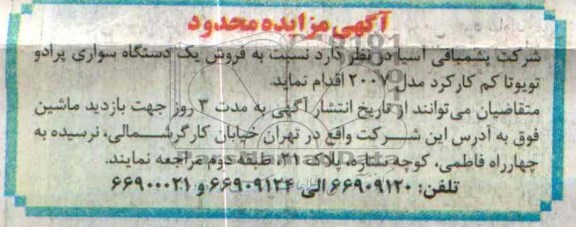 آگهی مزایده محدود
شرکت پشمبافی آسیا در نظر دارد نسبت به فروش یک دستگاه سواری پرادو
تویوتا کم کارکرد مدل ۲۰۰۷ اقدام نماید.
متقاضیان می‌توانند از تاریخ انتشار آگهی به مدت ۳ روز جهت بازدید ماشین
فوق به آدرس این شرکت واقع در تهران خیابان کارگرشمالی، نرسیده به
چهارراه فاطمی، کوچه ستاره، پلاک ۲۱، طبقه دوم مراجعه نمایند.
تلفن: ۶۶۹۰۹۱۲۰ الی ۶۶۹۰۹۱۲۴ و ۶۶۹۰۰۰۲۱